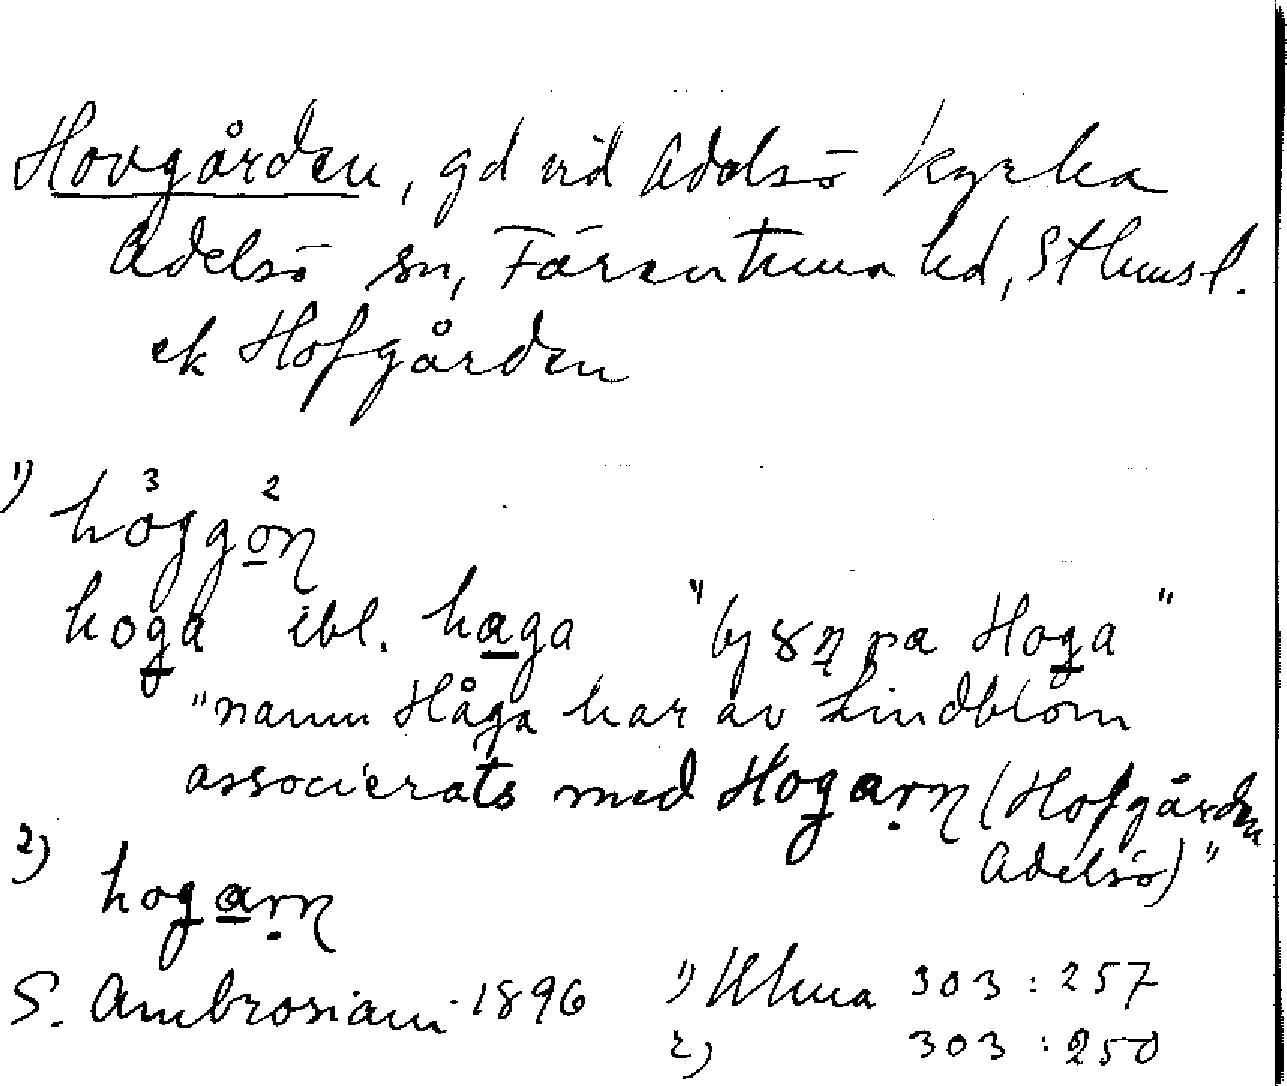 Hovgården, gd vid Adelsö kyrka
Adelsö sn, Färentuna hd, Sthmsl.
ek Hofgården
1) håggån
hoga ibl. haga "bysna Hoga"
"namn Håga har av Lindblom
associerats med Hogarn (Hofgården
Adelsö)"
2) hogarn
S. Ambrosiani 1896 1) Ulma 303:257
2) 303:250